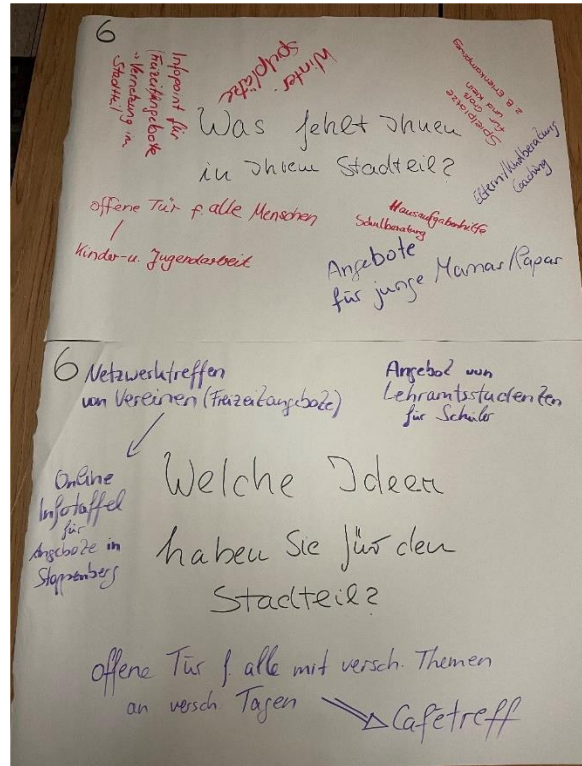 6
Infopoint für
(Freizeitangebote
→ Vernetzung im
Stadtteil)
Winter
spielplätze
Spielplätze
für Groß
und Klein
z.B. Ernenkampweg
Was fehlt Ihnen
in Ihrem Stadtteil?
Eltern/Kindberatung
Coaching
offene Tür f. alle Menschen
/
Kinder- u. Jugendarbeit
Hausaufgabenhilfe
Schulberatung
Angebote
für junge Mamas/Papas
6
Netzwerktreffen
von Vereinen (Freizeitangebote)
Angebot von
Lehramtsstudenten
für Schüler
Online
Infotaffel
für
Angebote in
Stoppenberg
Welche Ideen
haben Sie für den
Stadtteil?
offene Tür f. alle mit versch. Themen
an versch. Tagen ⇒ Cafétreff